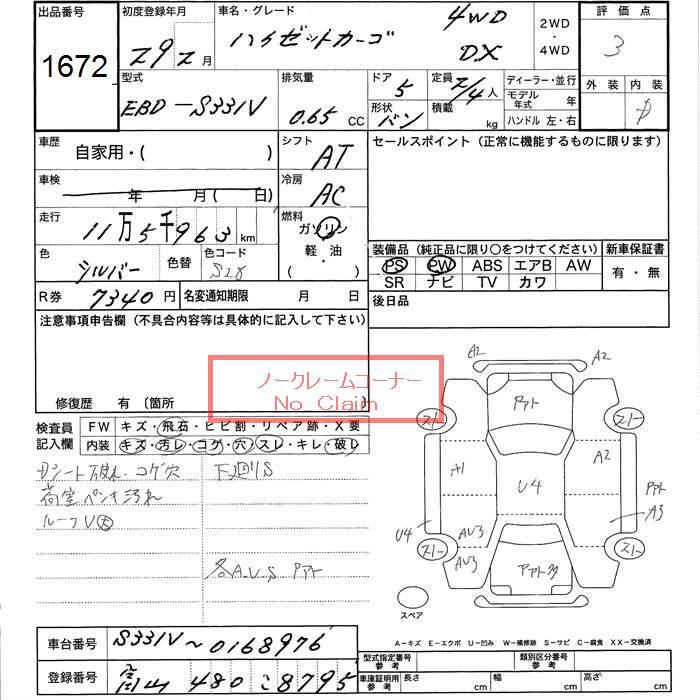 出品番号
1672
初度登録年月
29 2月
車名・グレード
ハイゼットカーゴ
4WD
DX
2WD
・
4WD
評価点
3
外装 内装
D
型式
EBD-S331V
排気量
0.65 CC
ドア
5
形状
バン
定員
2/4人
積載
kg
ディーラー・並行
モデル年式 年
ハンドル 左・右
車歴
自家用・( )
シフト
AT
セールスポイント（正常に機能するものに限ります）
車検
年 月( 日)
冷房
AC
走行
11万5千963km
燃料
ガソリン
軽・油
( ・ )
色
シルバー
色替
色コード
S28
装備品（純正品に限り○をつけてください）
新車保証書
PS PW ABS エアB AW
SR ナビ TV カワ
有・無
R券
7340円
名変通知期限 月 日
後日品
注意事項申告欄（不具合内容等は具体的に記入して下さい）
ノークレームコーナー
No Claim
修復歴 有〔箇所
検査員記入欄
FW キズ・飛石・ヒビ割・リペア跡・X要
内装 キズ・汚レ・コゲ・穴・スレ・キレ・破レ
Dシート破れ・コゲ穴
下廻りS
荷室ペンキ汚れ
ルーフV大
各A.V.S アアト
A2
A2
スノー
スノー
アアト
A1
A2
U4
アアト
A3
U4
AU3
AU3
スノー
スノー
スペア
A-キズ E-エクボ U-凹み W-補修跡 S-サビ C-腐食 XX-交換済
車台番号
S331V~0168976
登録番号
富山 480 こ 8795
型式指定番号
参考
類別区分番号
参考
車庫証明用
参考
長さ cm
幅 cm
高さ cm